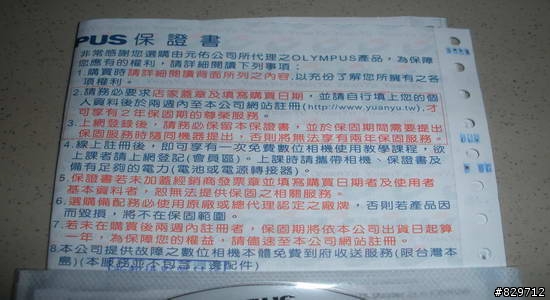 PUS 保證書
非常感謝您選購由元佑公司所代理之OLYMPUS產品，為保障
您應有的權利，請詳細閱讀下列事項：
1.購買時請詳細閱讀背面所列之內容，以充份了解您所擁有之各
項權利。
2.請務必要求店家蓋章及填寫購買日期，並請自行填上您的個
人資料後於兩週內至本公司網站註冊(http://www.yuanyu.tw)，才
可享有2年保固期的尊榮服務。
3.上網登錄後，請務必保留本保證書，並於保固期間需要提出
保固服務時隨同機器提出，否則將無法享有兩年保固服務。
4.線上註冊後，即可享有一次免費數位相機使用教學課程，欲
上課者請上網登記(會員區)。上課時請攜帶相機、保證書及
備有足夠的電力(電池或電源轉接器)。
5.保證書若未加蓋經銷商發票章並填寫購買日期者及使用者
基本資料者，恕無法提供保固之相關服務。
6.選購備配務必使用原廠或總代理認定之廠牌，否則若產品因
而毀損，將不在保固範圍。
7.若未在購買後兩週內註冊者，保固期將依本公司出貨日起算
一年，為保障您的權益，請儘速至本公司網站註冊。
8.本公司提供故障之數位相機本體免費到府收送服務(限台灣本
島)(本服務並不包含週邊配件)
#829712